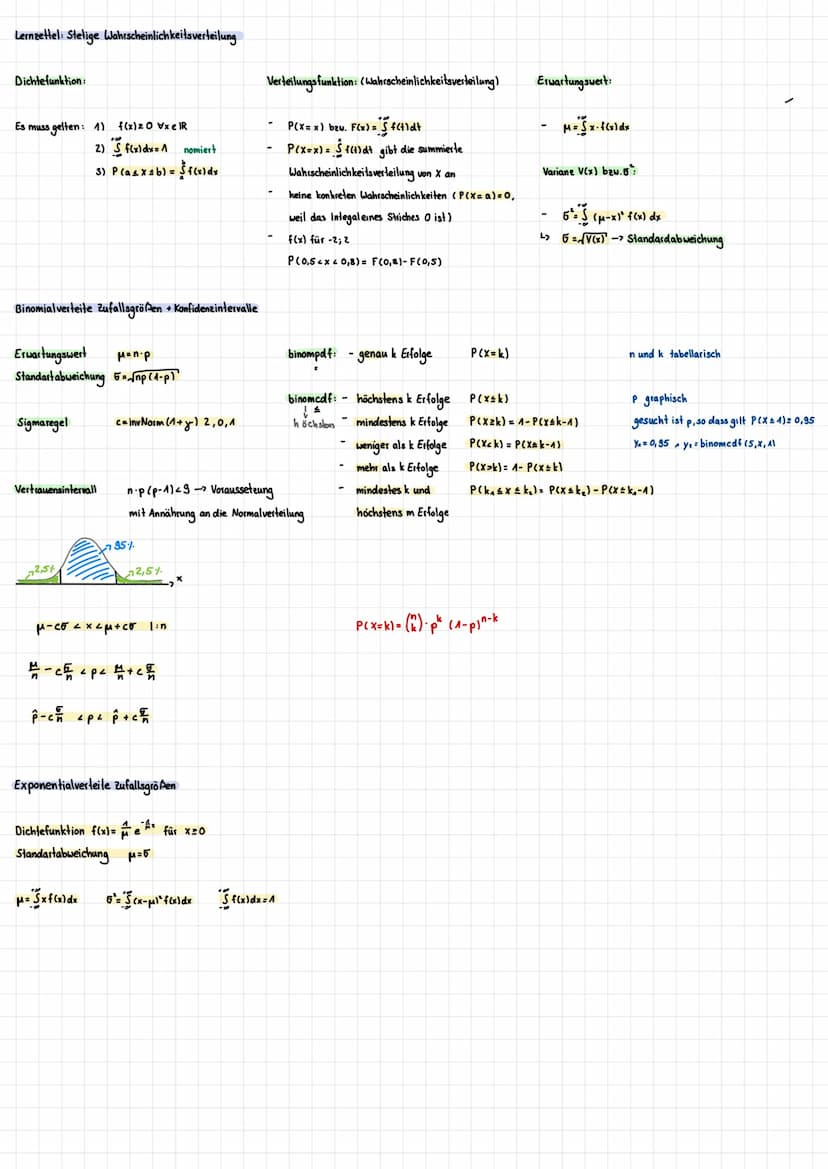 Lernzettel: Stetige Wahrscheinlichkeitsverteilung
Dichtefunktion:
Es muss gelten: 1) f(x)≥0 ∀x∈ℝ
2) ∫_{-∞}^{+∞} f(x)dx=1 nomiert
3) P(a≤x≤b) = ∫_a^b f(x)dx
Verteilungsfunktion: (Wahrscheinlichkeitsverteilung)
- P(X=x) bzw. F(x)= ∫_{-∞}^{+∞} f(t)dt
- P(X=x) = ∫ f(t)dt gibt die summierte
Wahrscheinlichkeitsverteilung von X an
- keine konkreten Wahrscheinlichkeiten (P(X=a)=0,
weil das Integal eines Striches 0 ist)
- f(x) für -2;2
P(0,5<x<0,8)= F(0,8)-F(0,5)
Erwartungswert:
- μ=∫_{-∞}^{+∞} x·f(x)dx
Variane V(x) bzw. σ²:
- σ²=∫_{-∞}^{+∞} (μ-x)² f(x) dx
↳ σ=√V(x) → Standardabweichung
Binomialverteilte Zufallsgrößen + Konfidenzintervalle
Erwartungswert μ=n·p
Standartabweichung σ=√np(1-p)
Sigmaregel c=invNorm(1+γ) 2,0,1
Vertrauensintervall n·p(p-1)<9 → Voraussetzung
mit Annährung an die Normalverteilung
2,5% 95% 2,5% x
μ-cσ < x < μ+cσ |:n
μ/n - c σ/n < p < μ/n + c σ/n
p̂-c σ/n < p < p̂+c σ/n
binompdf: - genau k Erfolge P(X=k)
=
binomcdf: - höchstens k Erfolge P(X≤k)
↓ ≤
höchsten - mindestens k Erfolge P(X≥k) = 1-P(X≤k-1)
- weniger als k Erfolge P(X<k) = P(X≤k-1)
- mehr als k Erfolge P(X>k)= 1- P(X≤k)
- mindestes k und P(k₁≤X≤k₂)= P(X≤k₂)-P(X≤k₁-1)
höchstens m Erfolge
P(X=k)= (n k)·p^k (1-p)^{n-k}
n und k tabellarisch
P graphisch
gesucht ist p, so dass gilt P(X≤1)≥0,95
y₁=0,95 ∧ y₂=binomcdf(5,x,1)
Exponentialverteilte Zufallsgrößen
Dichtefunktion f(x)= 1/μ e^{-1/μ x} für x≥0
Standartabweichung μ=σ
μ=∫_{-∞}^{+∞} x f(x)dx σ²=∫_{-∞}^{+∞} (x-μ)² f(x)dx ∫_{-∞}^{+∞} f(x)dx=1